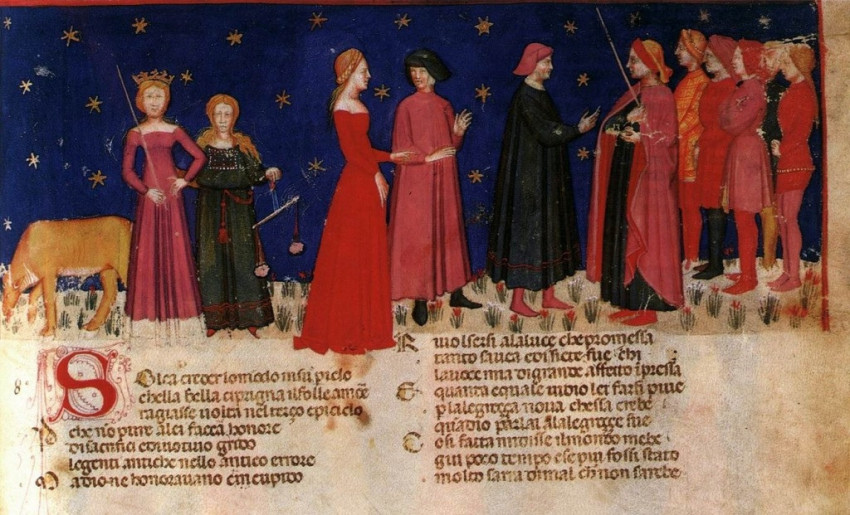 8
Solea creder lomõdo insu piclo
chella bella ciprigna ilfolle amore
ragiasse uolta nel terço epiciclo
che nõ pure alei faceã honore
di sacrifici ediuotiuo grido
legenti antiche nello antico errore
adione honorauano cupido
Riuolsersi alaluce che promessa
tanto sauea edi siete fue chi
lauoce mia digrande affetto ĩpressa
E quanta equale uidio lei farsi piue
p lalegreça noua chessa crebe
quãdio parlai alalegreçe sue
Cosi fatta midisse ilmondo mebe
giu poco tempo ese piu fossi stato
molto sara dimal ch̃ non sarebe